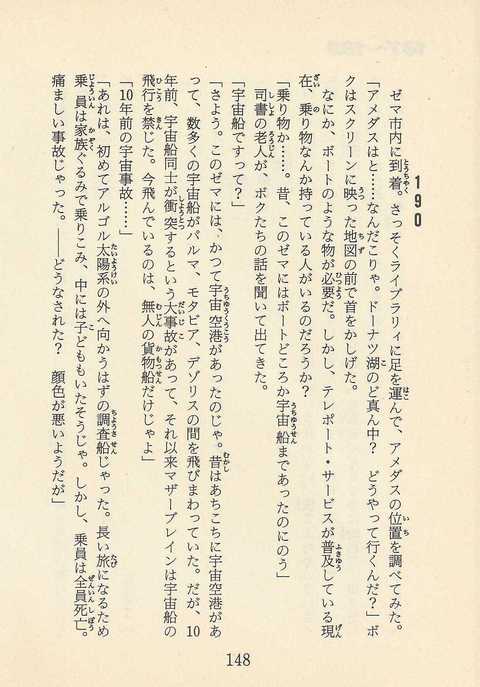 190
ゼマ市内に到着。さっそくライブラリィに足を運んで、アメダスの位置を調べてみた。
「アメダスはと……なんだこりゃ。ドーナツ湖のど真ん中？　どうやって行くんだ？」ボ
クはスクリーンに映った地図の前で首をかしげた。
なにか、ボートのような物が必要だ。しかし、テレポート・サービスが普及している現
在、乗り物なんか持っている人がいるのだろうか？
「乗り物か……。昔、このゼマにはボートどころか宇宙船まであったのにのう」
司書の老人が、ボクたちの話を聞いて出てきた。
「宇宙船ですって？」
「さよう。このゼマには、かつて宇宙空港があったのじゃ。昔はあちこちに宇宙空港があ
って、数多くの宇宙船がパルマ、モタビア、デゾリスの間を飛びまわっていた。だが、10
年前、宇宙船同士が衝突するという大事故があって、それ以来マザーブレインは宇宙船の
飛行を禁じた。今飛んでいるのは、無人の貨物船だけじゃよ」
「10年前の宇宙事故……」
「あれは、初めてアルゴル太陽系の外へ向かうはずの調査船じゃった。長い旅になるため
乗員は家族ぐるみで乗りこみ、中には子どももいたそうじゃ。しかし、乗員は全員死亡。
痛ましい事故じゃった。――どうなされた？　顔色が悪いようだが」
148